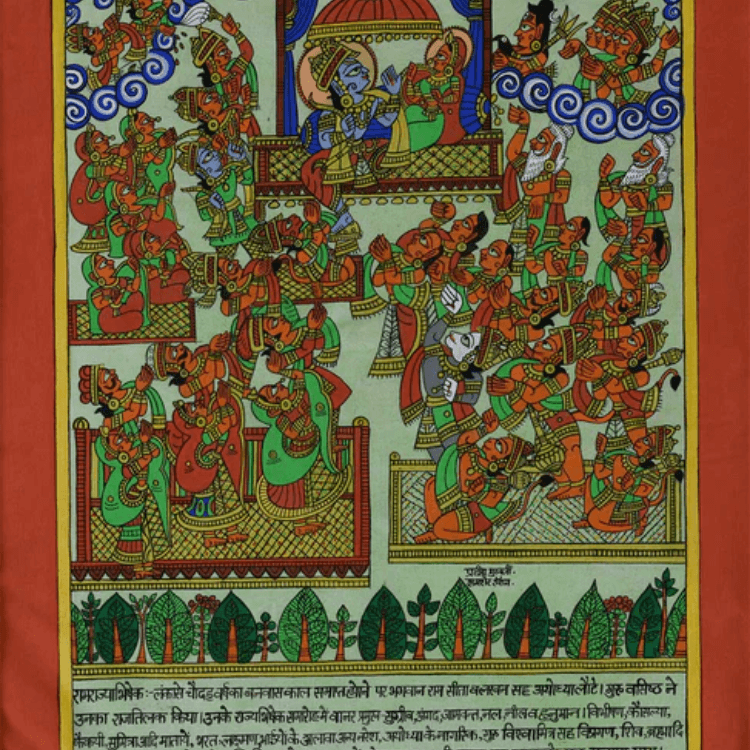 रामराज्याभिषेक:- लंकासे चौदह वर्षका बनवास काल समाप्त होने पर भगवान राम सीता व लखन सह अयोध्या लौटे। गुरु वसिष्ठ ने
उनका राजतिलक किया। उनके राज्यभिषेक समारोहमे वानर प्रमुख सुग्रीव, अंगद, जामवन्त, नल, नील व हनुमान। विभीषण, कौसल्या,
कैकयी, सुमित्रा आदि मातायें, भरत-लक्ष्मण, भाईयो के अलावा अन्य नरेश, अयोध्या के नागरिक, गुरु विश्वामित्र सह विप्रगण, शिव, ब्रह्मादि